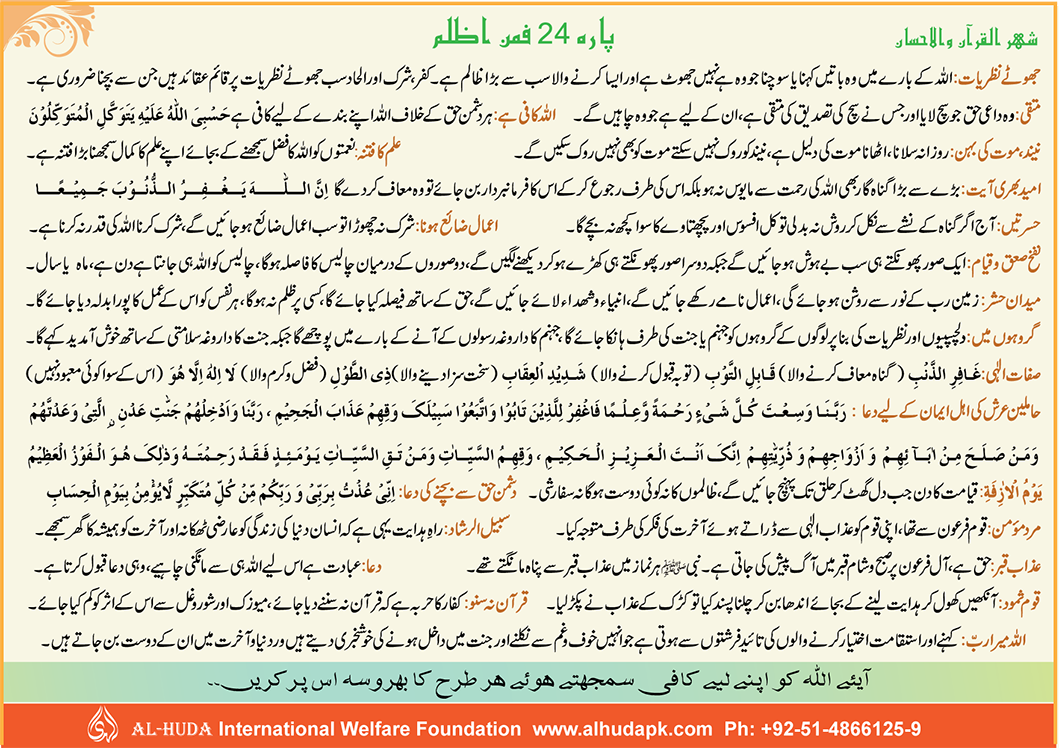 شهر القرآن والاحسان
پارہ 24 فمن اظلم
جھوٹے نظریات: اللہ کے بارے میں وہ باتیں کہنا یا سوچنا جو وہ ہے نہیں جھوٹ ہے اور ایسا کرنے والا سب سے بڑا ظالم ہے۔ کفر، شرک اور الحاد سب جھوٹے نظریات پر قائم عقائد ہیں جن سے بچنا ضروری ہے۔
متقی: وہ داعی حق جو سچ لایا اور جس نے سچ کی تصدیق کی متقی ہے، ان کے لیے ہے جو وہ چاہیں گے۔ اللہ کافی ہے: ہر دشمن حق کے خلاف اللہ اپنے بندے کے لیے کافی ہے حَسْبِیَ اللّٰهُ عَلَیْهِ یَتَوَکَّلُ الْمُتَوَکِّلُوْنَ
نیند، موت کی بہن: روزانہ سلانا، اٹھانا موت کی دلیل ہے، نیند کو روک نہیں سکتے موت کو بھی نہیں روک سکیں گے۔ علم کا فتنہ: نعمتوں کو اللہ کا فضل سمجھنے کے بجائے اپنے علم کا کمال سمجھنا بڑا فتنہ ہے۔
امید بھری آیت: بڑے سے بڑا گناہ گار بھی اللہ کی رحمت سے مایوس نہ ہو بلکہ اس کی طرف رجوع کر کے اس کا فرمانبردار بن جائے تو وہ معاف کر دے گا اِنَّ اللّٰهَ یَغْفِرُ الذُّنُوْبَ جَمِیْعًا
حسرتیں: آج اگر گناہ کے نشے سے نکل کر روش نہ بدلی تو کل افسوس اور پچھتاوے کا سوا کچھ نہ بچے گا۔ اعمال ضائع ہونا: شرک نہ چھوڑا تو سب اعمال ضائع ہو جائیں گے، شرک کرنا اللہ کی قدر نہ کرنا ہے۔
نفخ صعق و قیام: ایک صور پھونکتے ہی سب بے ہوش ہو جائیں گے جبکہ دوسرا صور پھونکتے ہی کھڑے ہو کر دیکھنے لگیں گے، دو صوروں کے درمیان چالیس کا فاصلہ ہوگا، چالیس کو اللہ ہی جانتا ہے دن ہے، ماہ یا سال۔
میدان حشر: زمین رب کے نور سے روشن ہو جائے گی، اعمال نامے رکھے جائیں گے، انبیاء و شھداء لائے جائیں گے، حق کے ساتھ فیصلہ کیا جائے گا، کسی پر ظلم نہ ہوگا، ہر نفس کو اس کے عمل کا پورا بدلہ دیا جائے گا۔
گروہوں میں: دلچسپیوں اور نظریات کی بنا پر لوگوں کے گروہوں کو جہنم یا جنت کی طرف ہانکا جائے گا، جہنم کا داروغہ رسولوں کے آنے کے بارے میں پوچھے گا جبکہ جنت کا داروغہ سلامتی کے ساتھ خوش آمدید کہے گا۔
صفات الٰہی: غَافِرِ الذَّنْبِ (گناہ معاف کرنے والا) قَابِلِ التَّوْبِ (توبہ قبول کرنے والا) شَدِیْدِ الْعِقَابِ (سخت سزا دینے والا) ذِی الطَّوْلِ (فضل و کرم والا) لَا اِلٰهَ اِلَّا هُوَ (اس کے سوا کوئی معبود نہیں)
حاملین عرش کی اہل ایمان کے لیے دعا: رَبَّنَا وَسِعْتَ کُلَّ شَیْءٍ رَحْمَةً وَّعِلْمًا فَاغْفِرْ لِلَّذِیْنَ تَابُوْا وَاتَّبَعُوْا سَبِیْلَکَ وَقِهِمْ عَذَابَ الْجَحِیْمِ ، رَبَّنَا وَاَدْخِلْهُمْ جَنّٰتِ عَدْنِ ِۨ الَّتِیْ وَعَدْتَّهُمْ
وَمَنْ صَلَحَ مِنْ اٰبَآئِهِمْ وَ اَزْوَاجِهِمْ وَ ذُرِّیّٰتِهِمْ اِنَّکَ اَنْتَ الْعَزِیْزُ الْحَکِیْمُ ، وَقِهِمُ السَّیِّاٰتِ وَمَنْ تَقِ السَّیِّاٰتِ یَوْمَئِذٍ فَقَدْ رَحِمْتَهٗ وَذٰلِکَ هُوَ الْفَوْزُ الْعَظِیْمُ
یَوْمُ الْاٰزِفَةِ: قیامت کا دن جب دل گھٹ کر حلق تک پہنچ جائیں گے، ظالموں کا نہ کوئی دوست ہوگا نہ سفارشی۔ دشمن حق سے بچنے کی دعا: اِنِّیْ عُذْتُ بِرَبِّیْ وَ رَبِّکُمْ مِنْ کُلِّ مُتَکَبِّرٍ لَّایُؤْمِنُ بِیَوْمِ الْحِسَابِ
مرد مؤمن: قوم فرعون سے تھا، اپنی قوم کو عذاب الٰہی سے ڈراتے ہوئے آخرت کی فکر کی طرف متوجہ کیا۔ سبیل الرشاد: راہ ہدایت یہی ہے کہ انسان دنیا کی زندگی کو عارضی ٹھکانہ اور آخرت کو ہمیشہ کا گھر سمجھے۔
عذاب قبر: حق ہے، آل فرعون پر صبح و شام قبر میں آگ پیش کی جاتی ہے۔ نبی ﷺ ہر نماز میں عذاب قبر سے پناہ مانگتے تھے۔ دعا: عبادت ہے اس لیے اللہ ہی سے مانگنی چاہیے، وہی دعا قبول کرتا ہے۔
قوم ثمود: آنکھیں کھول کر ہدایت لینے کے بجائے اندھا بن کر چلنا پسند کیا تو کڑک کے عذاب نے پکڑ لیا۔ قرآن نہ سنو: کفار کا حربہ ہے کہ قرآن نہ سننے دیا جائے، میوزک اور شور وغل سے اس کے اثر کو کم کیا جائے۔
اللہ میرا ربّ: کہنے اور استقامت اختیار کرنے والوں کی تائید فرشتوں سے ہوتی ہے جو انہیں خوف و غم سے نکلنے اور جنت میں داخل ہونے کی خوشخبری دیتے ہیں ور دنیا و آخرت میں ان کے دوست بن جاتے ہیں۔
آیئے اللہ کو اپنے لیے کافی سمجھتے ہوئے ہر طرح کا بھروسہ اس پر کریں۔۔
AL-HUDA International Welfare Foundation www.alhudapk.com Ph: +92-51-4866125-9